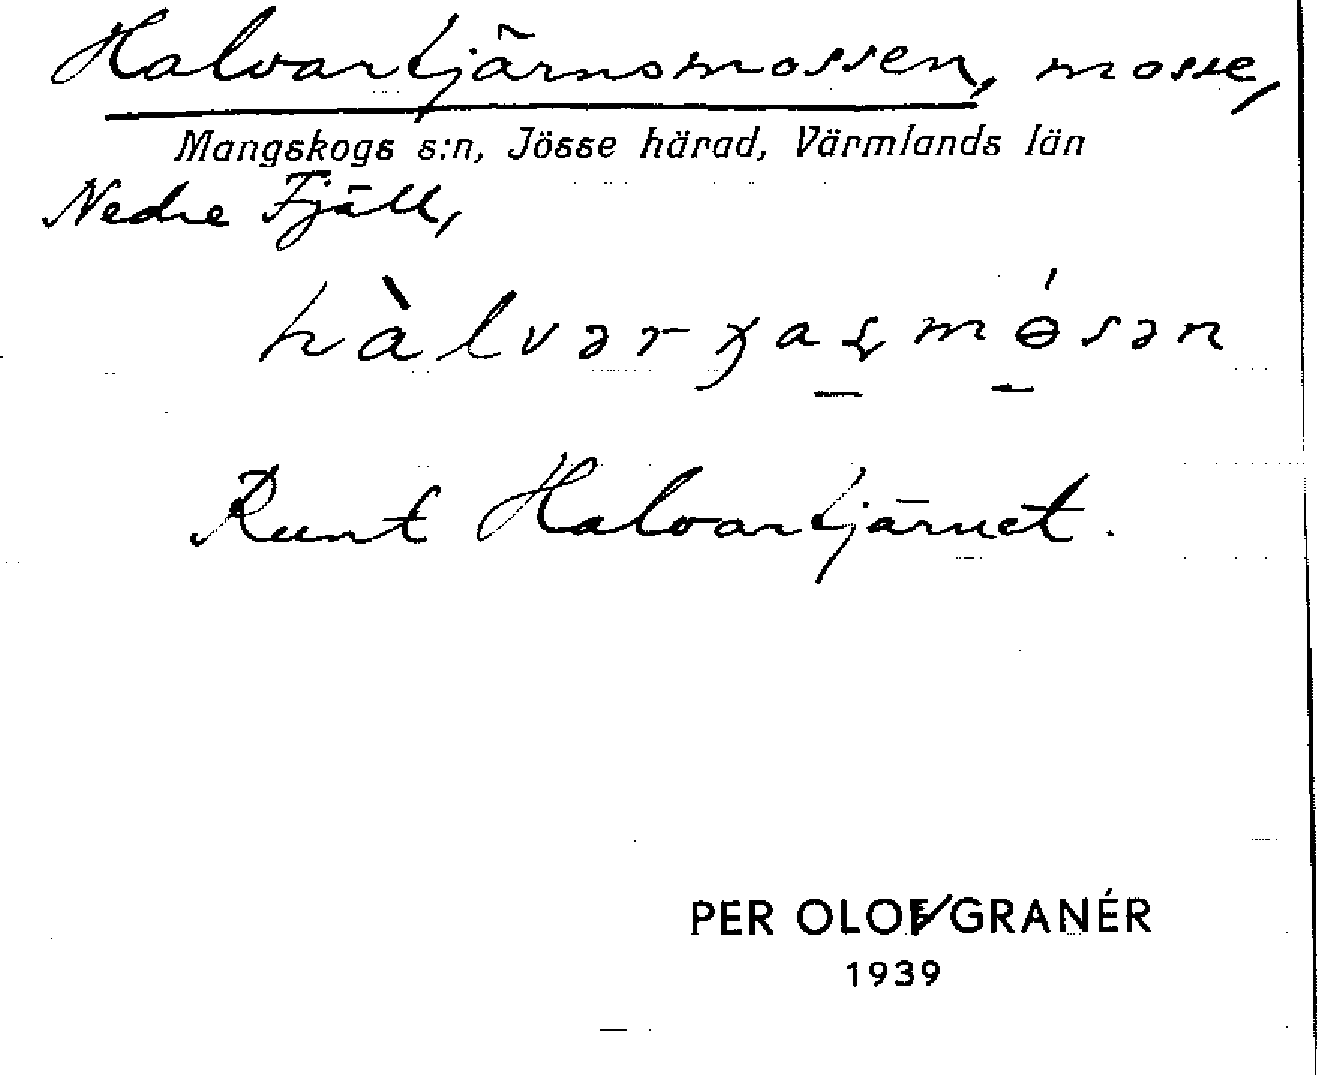 Halvartjärnsmossen, mosse,
Mangskogs s:n, Jösse härad, Värmlands län
Nedre Fjäll,
Runt Halvartjärnet.
PER OLOF GRANÉR
1939